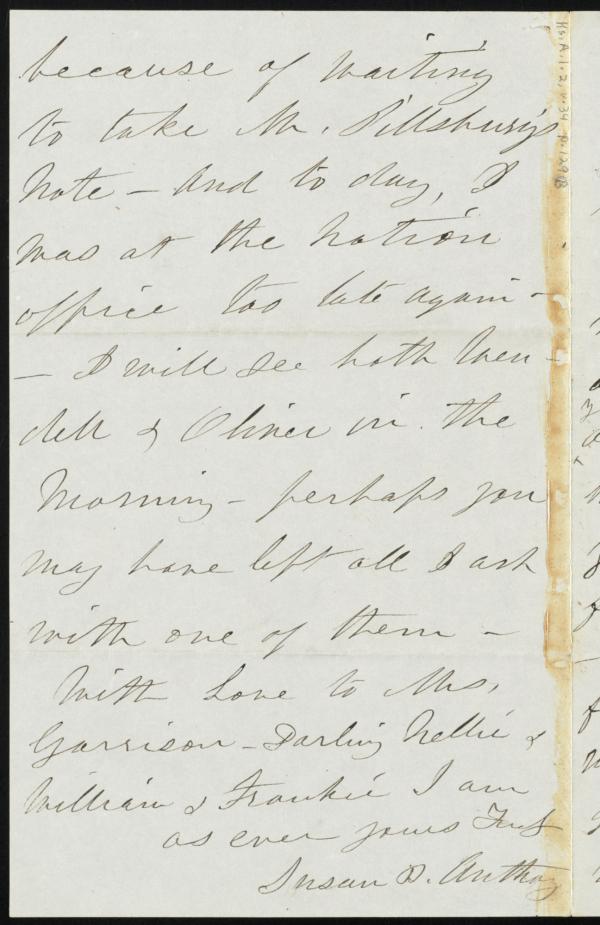 because of waiting
to take Mr. Pillsbury's
Note – And to day, I
was at the Nation
office too late again –
– I will see both Wen-
dell & Oliver in the
Morning – perhaps you
may have left all I ask
with one of them –
With Love to Mrs.
Garrison – Darling Nellie &
William & Frankie I am
as ever yours
Susan B. Anthony